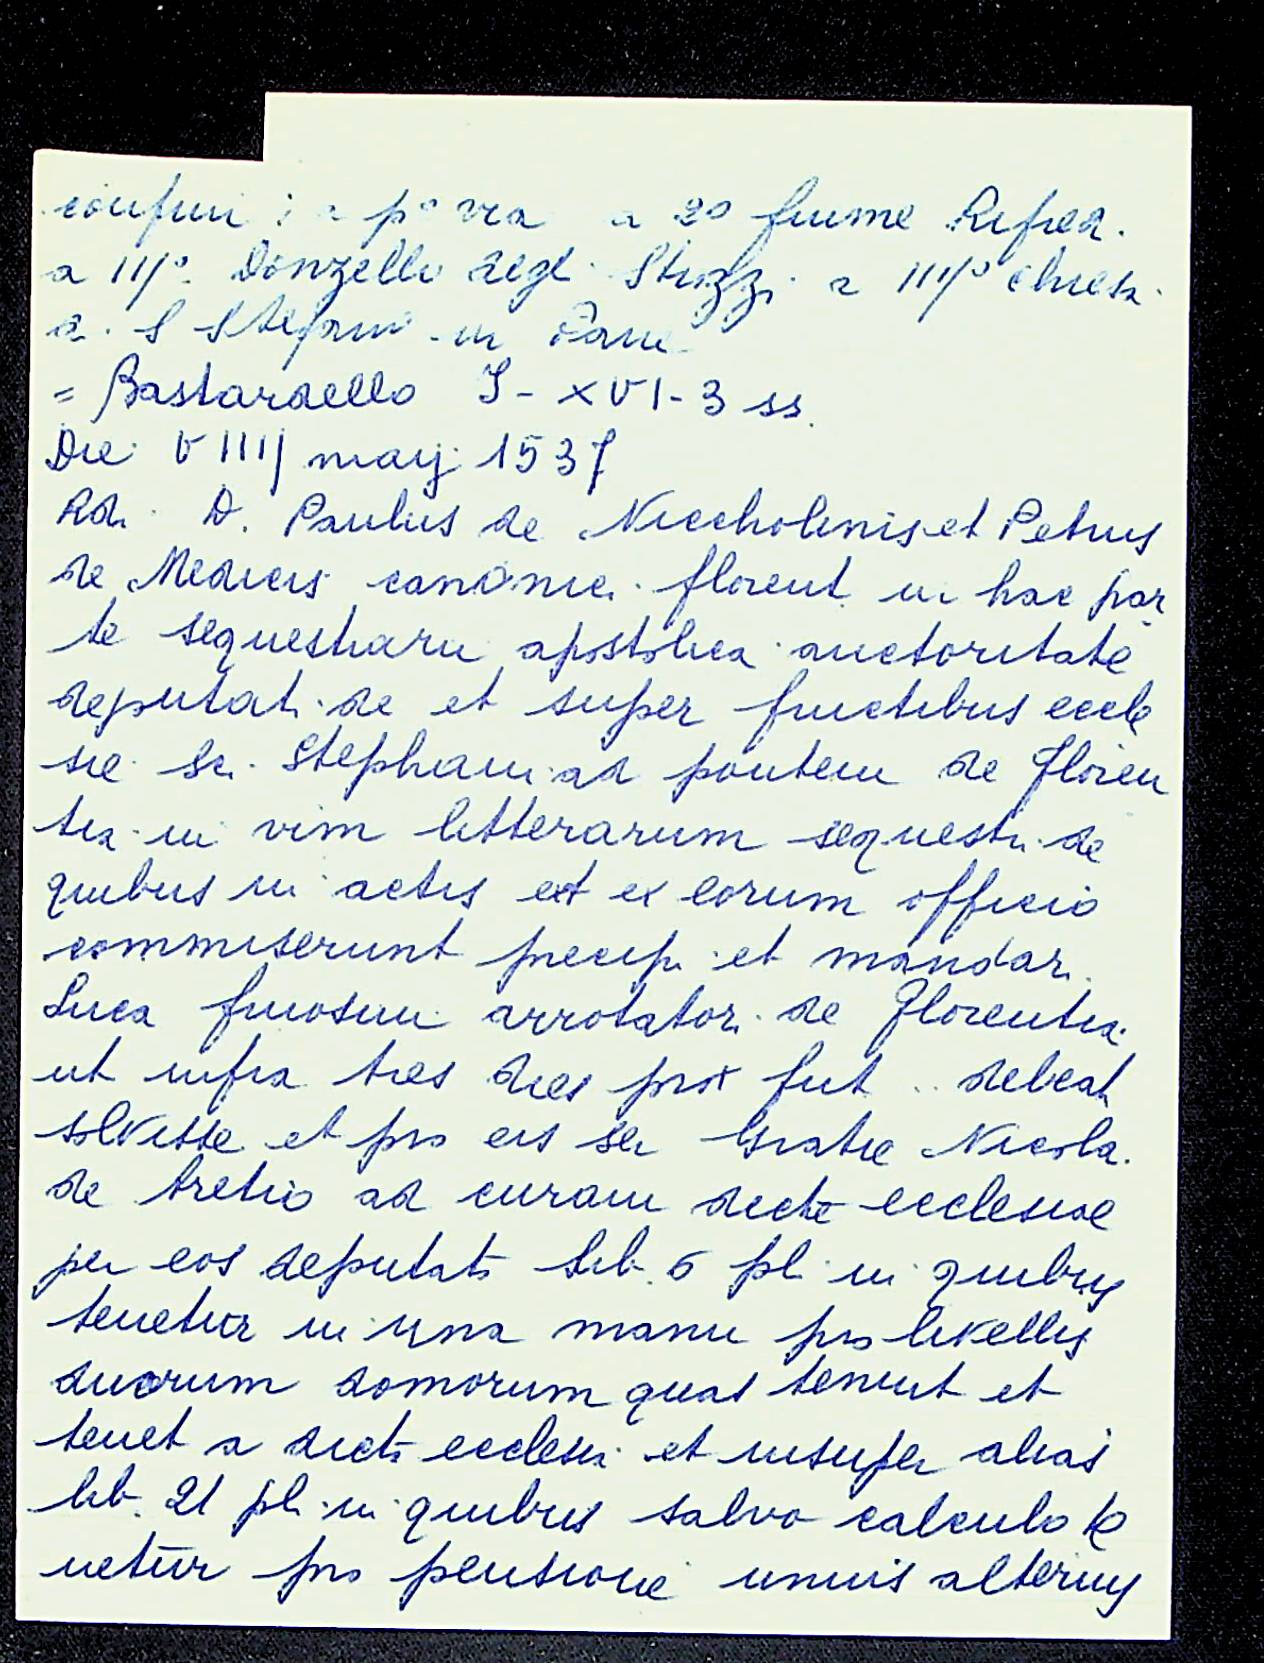 confini : a p° via a 2° fiume Rifred.
a III°. Donzello degl. Strozzi a IIII° chiesa
d. S Stefano in Pane
= Bastardello I - XVI - 3 ss.
Die VIIIJ maij 1537
Rdi. D. Paulus de Niccholinis et Petrus
de Medicis canonic. florent. in hac par
te sequestrarii apostolica auctoritate
deputati de et super fructibus eccle
sie Sci. Stephani ad pontem de Floren
tia in vim litterarum sequestri de
quibus in actis et ex eorum officio
commiserunt precip. et mandar.
Luca arrotator. de Florentia
ut infra tres dies prox fut .. debeat
solvisse et pro eis ser Gratie Nicola.
de ad curam dicte ecclesiae
per eos deputato lib. 6 pl. in quibus
tenetur in una manu pro livellis
duorum domorum quas tenuit et
tenet a dicta ecclesia et insuper alias
lib. 21 pl. in quibus salvo calculo te
netur pro pensione unius alterius